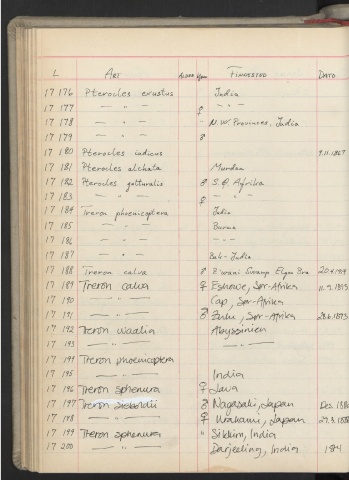 L ART ALDER Kjønn FINNESTED DATO
17 176 Pterocles exustus India
17 177 — " — ♀ — " —
17 178 — " — - N.W. Provinces, India
17 179 — " — ♂
17 180 Pterocles indicus 9.11.1867
17 181 Pterocles alchata
17 182 Pterocles gutturalis ♂ S.E. Afrika
17 183 — " — ♀ — " —
17 184 Treron phoenicoptera India
17 185 — " — Burma
17 186 — " — — " —
17 187 — " — India
17 188 Treron calva ♂ Swamp Elgon
17 189 Treron calva ♀ Eshowe, Sør-Afrika
17 190 — " — Cap, Sør-Afrika
17 191 — " — ♂ Zulu, Sør-Afrika
17 192 Treron waalia Abyssinien
17 193 — " — — " —
17 194 Treron phoenicoptera
17 195 India
17 196 Treron sphenura ♀ Java
17 197 Treron sieboldii ♂ Nagasaki, Japan Des.
17 198 — " — ♀ Urakami, Japan
17 199 Treron sphenura " Sikkim, India
17 200 Darjeeling, India